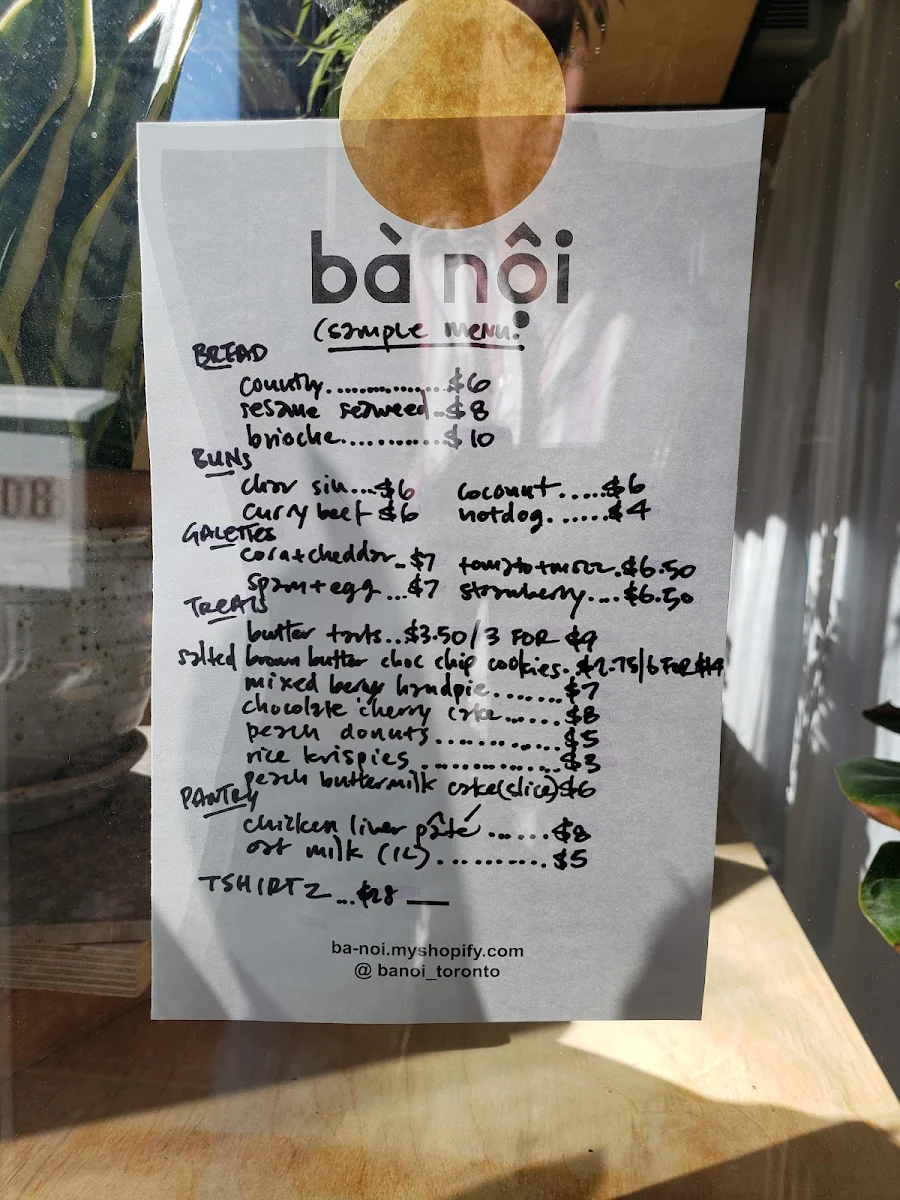 bà nội
(sample menu.
BREAD
country..................$6
sesame seaweed..$8
brioche............$10
BUNS
char siu...$6 coconut.....$6
curry beef $6 hotdog.......$4
GALETTES
corn+cheddar..$7 tomato+mozz.$6.50
spam+egg...$7 strawberry....$6.50
TREATS
butter tarts..$3.50/3 FOR $9
salted brown butter choc chip cookies. $2.75/6 FOR $14
mixed berry handpie.......$7
chocolate cherry cake......$8
peach donuts.............$5
rice krispies..............$3
peach buttermilk cake(slice)$6
PANTRY
chicken liver pâté......$8
oat milk (1L)..........$5
TSHIRTZ...$28
ba-noi.myshopify.com
@ banoi_toronto
DB